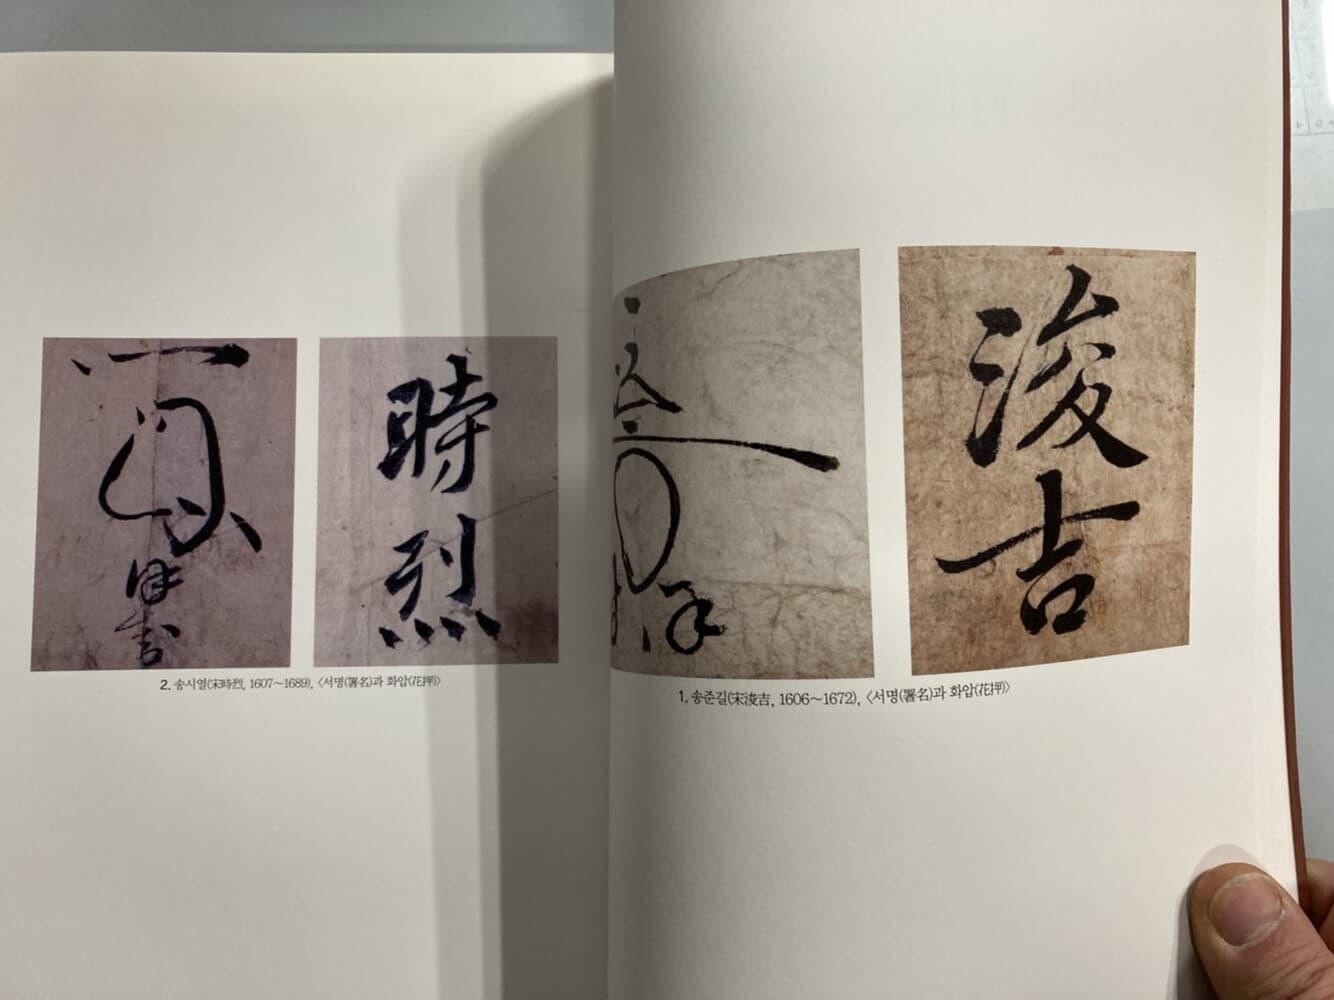 浚吉
1. 송준길(宋浚吉, 1606~1672), 〈서명(署名)과 화압(花押)〉
時烈
2. 송시열(宋時烈, 1607~1689), 〈서명(署名)과 화압(花押)〉